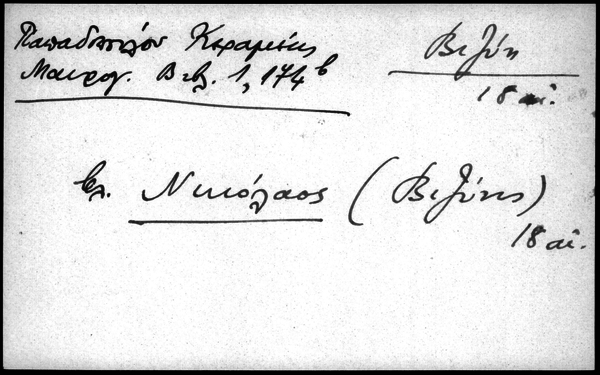 Παπαδοπούλου Κεραμέως
Μαυρογ. Βιβλ. 1, 174β
Βιζύη
18 αἰ.
βλ. Νικόλαος (Βιζύης)
18 αἰ.